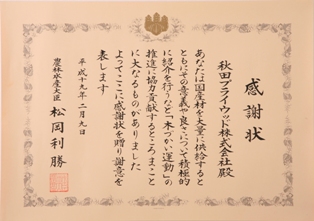 感謝状
秋田プライウッド株式会社殿
あなたは国産材を大量に供給すると
ともにその意義や良さについて積極的
に紹介を行うなど「木づかい運動」の
推進に協力貢献するところまことに
大なるものがありました
よってここに感謝状を贈り謝意を
表します
平成十九年二月九日
農林水産大臣 松岡利勝